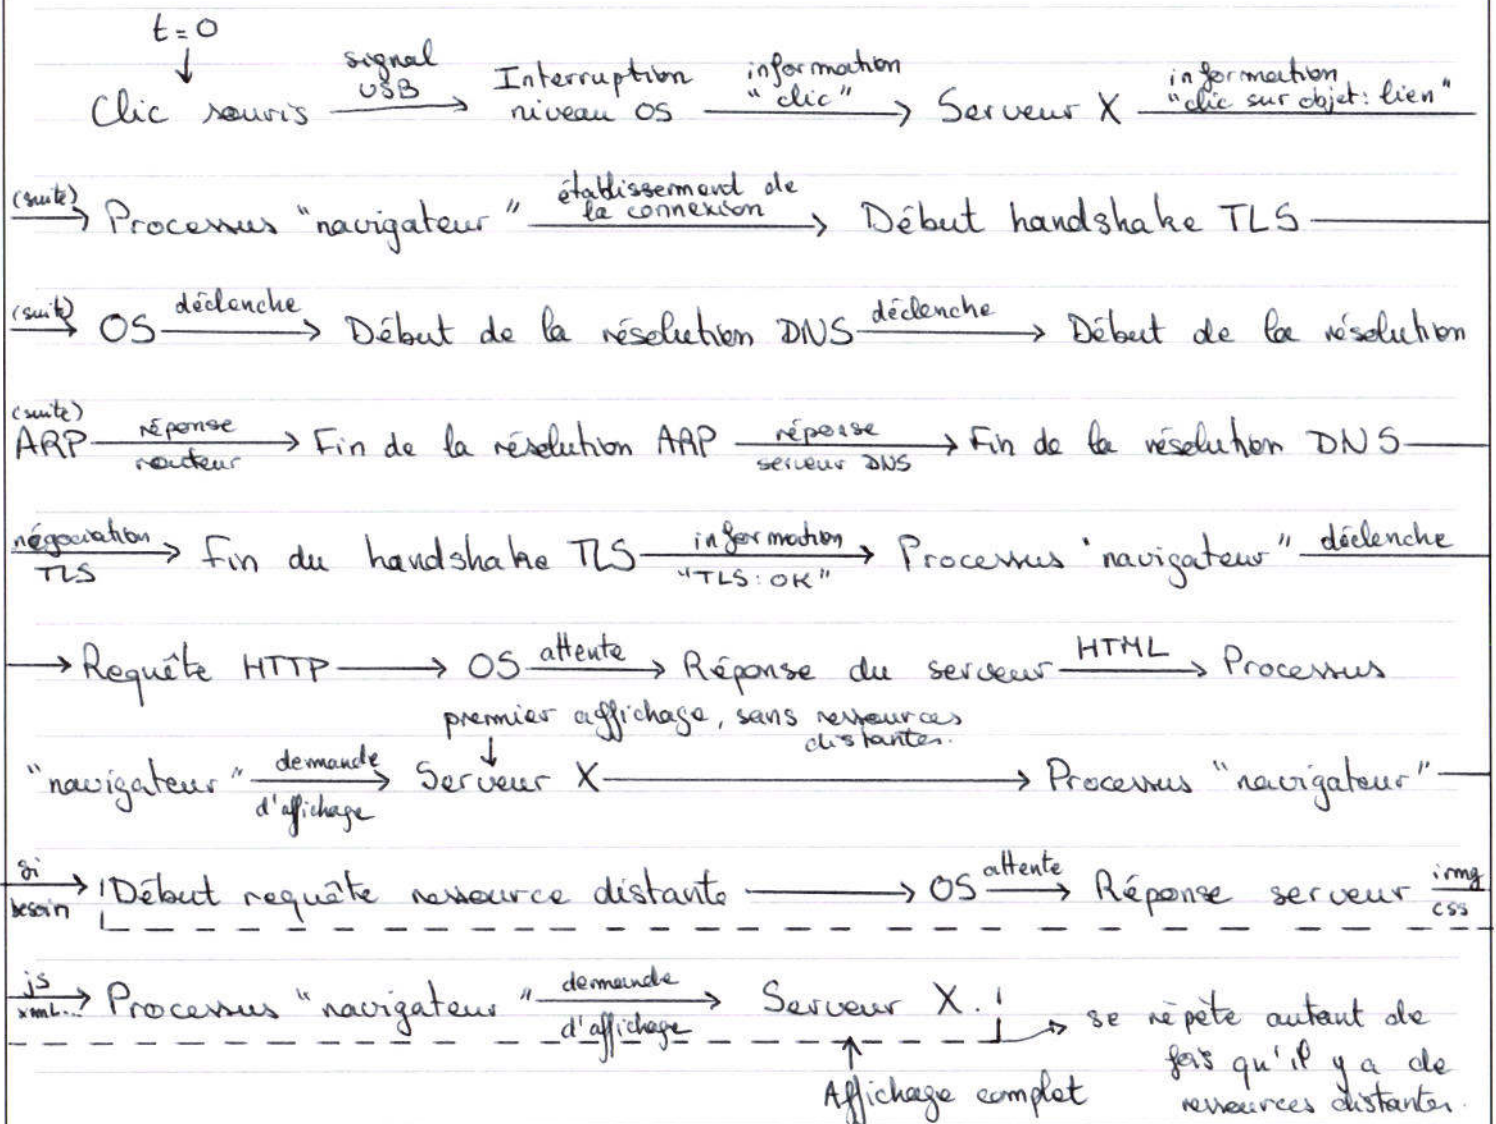 t=0
signal information information
Clic souris USB Interruption "clic" Serveur X "clic sur objet: lien"
niveau OS
(suite) Processus "navigateur" établissement de la connexion Début handshake TLS
(suite) OS déclenche Début de la résolution DNS déclenche Début de la résolution
(suite)
ARP réponse routeur Fin de la résolution ARP réponse serveur DNS Fin de la résolution DNS
négociation TLS Fin du handshake TLS information "TLS: OK" Processus "navigateur" déclenche
Requête HTTP OS attente Réponse du serveur HTML Processus
premier affichage, sans ressources
distantes.
"navigateur" demande d'affichage Serveur X Processus "navigateur"
si besoin Début requête ressource distante OS attente Réponse serveur img css
js xml... Processus "navigateur" demande d'affichage Serveur X.
se répète autant de
fois qu'il y a de
ressources distantes.
Affichage complet